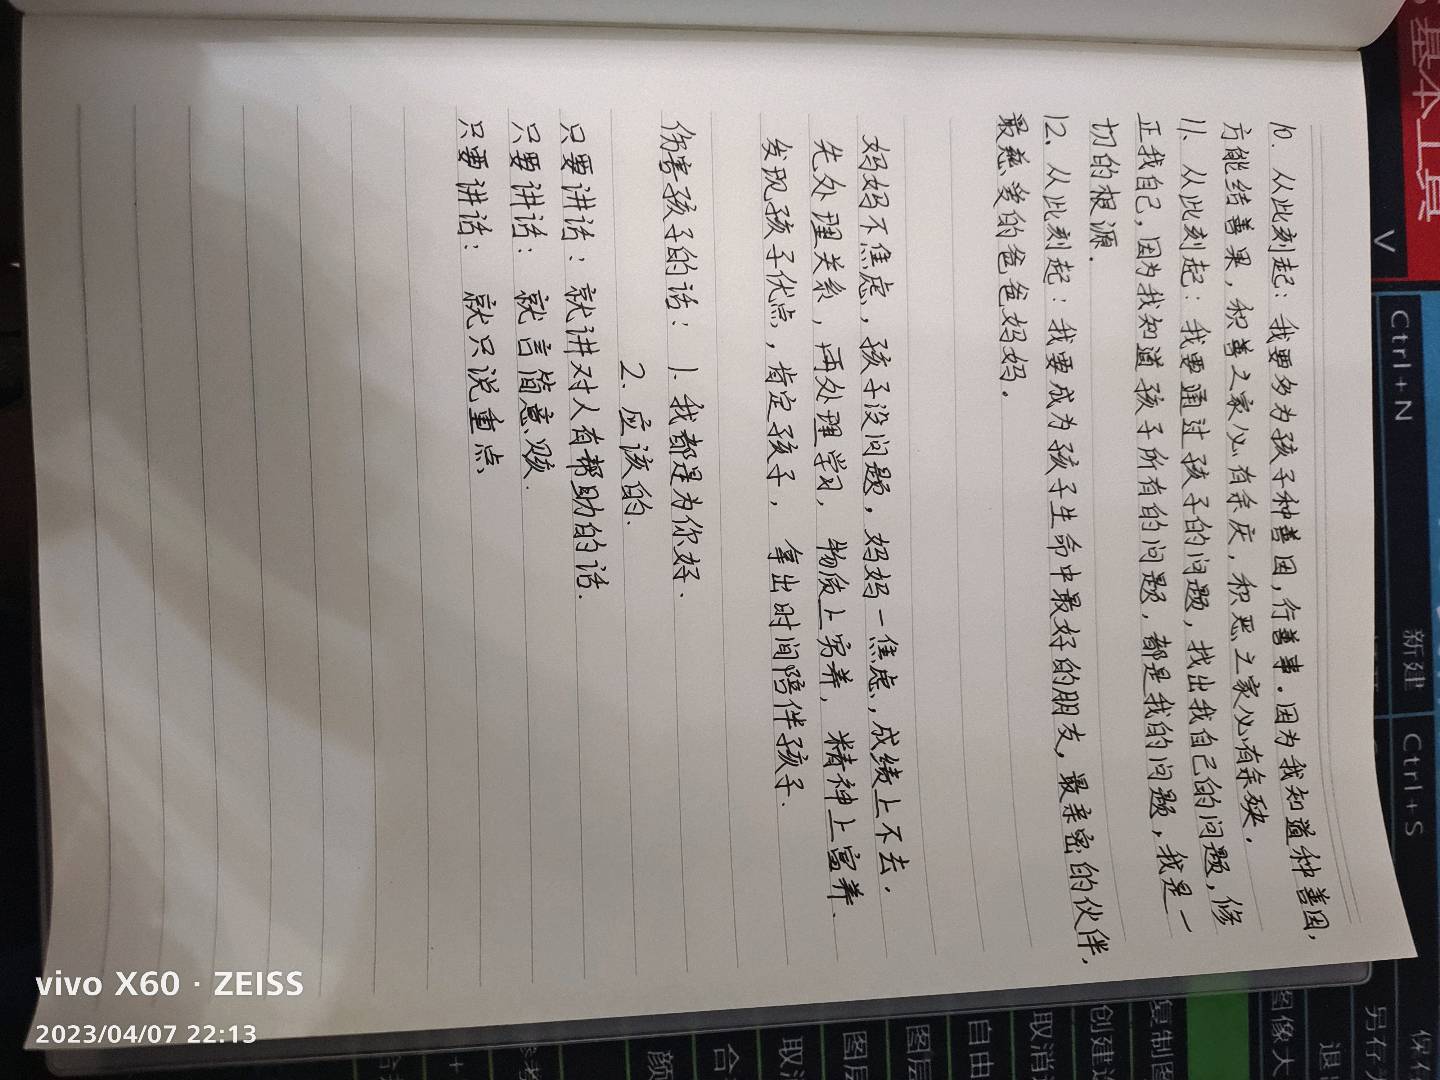 10. 从此刻起：我要多为孩子种善因，行善事。因为我知道种善因，
方能结善果，积善之家必有余庆，积恶之家必有余殃.
11. 从此刻起：我要通过孩子的问题，找出我自己的问题，修
正我自己，因为我知道孩子所有的问题，都是我的问题，我是一
切的根源.
12. 从此刻起：我要成为孩子生命中最好的朋友，最亲密的伙伴，
最慈爱的爸爸妈妈.
妈妈不焦虑，孩子没问题，妈妈一焦虑，成绩上不去.
先处理关系，再处理学习， 物质上穷养，精神上富养.
发现孩子优点，肯定孩子， 拿出时间陪伴孩子.
伤害孩子的话：1. 我都是为你好.
2. 应该的.
只要讲话：就讲对人有帮助的话.
只要讲话： 就言简意赅.
只要讲话： 就只说重点
基本工具
V
Ctrl+N
新建
Ctrl+S
另存为
图像大
复制图
取消
自由
图层
图层
取
合
颜
vivo X60 · ZEISS
2023/04/07 22:13